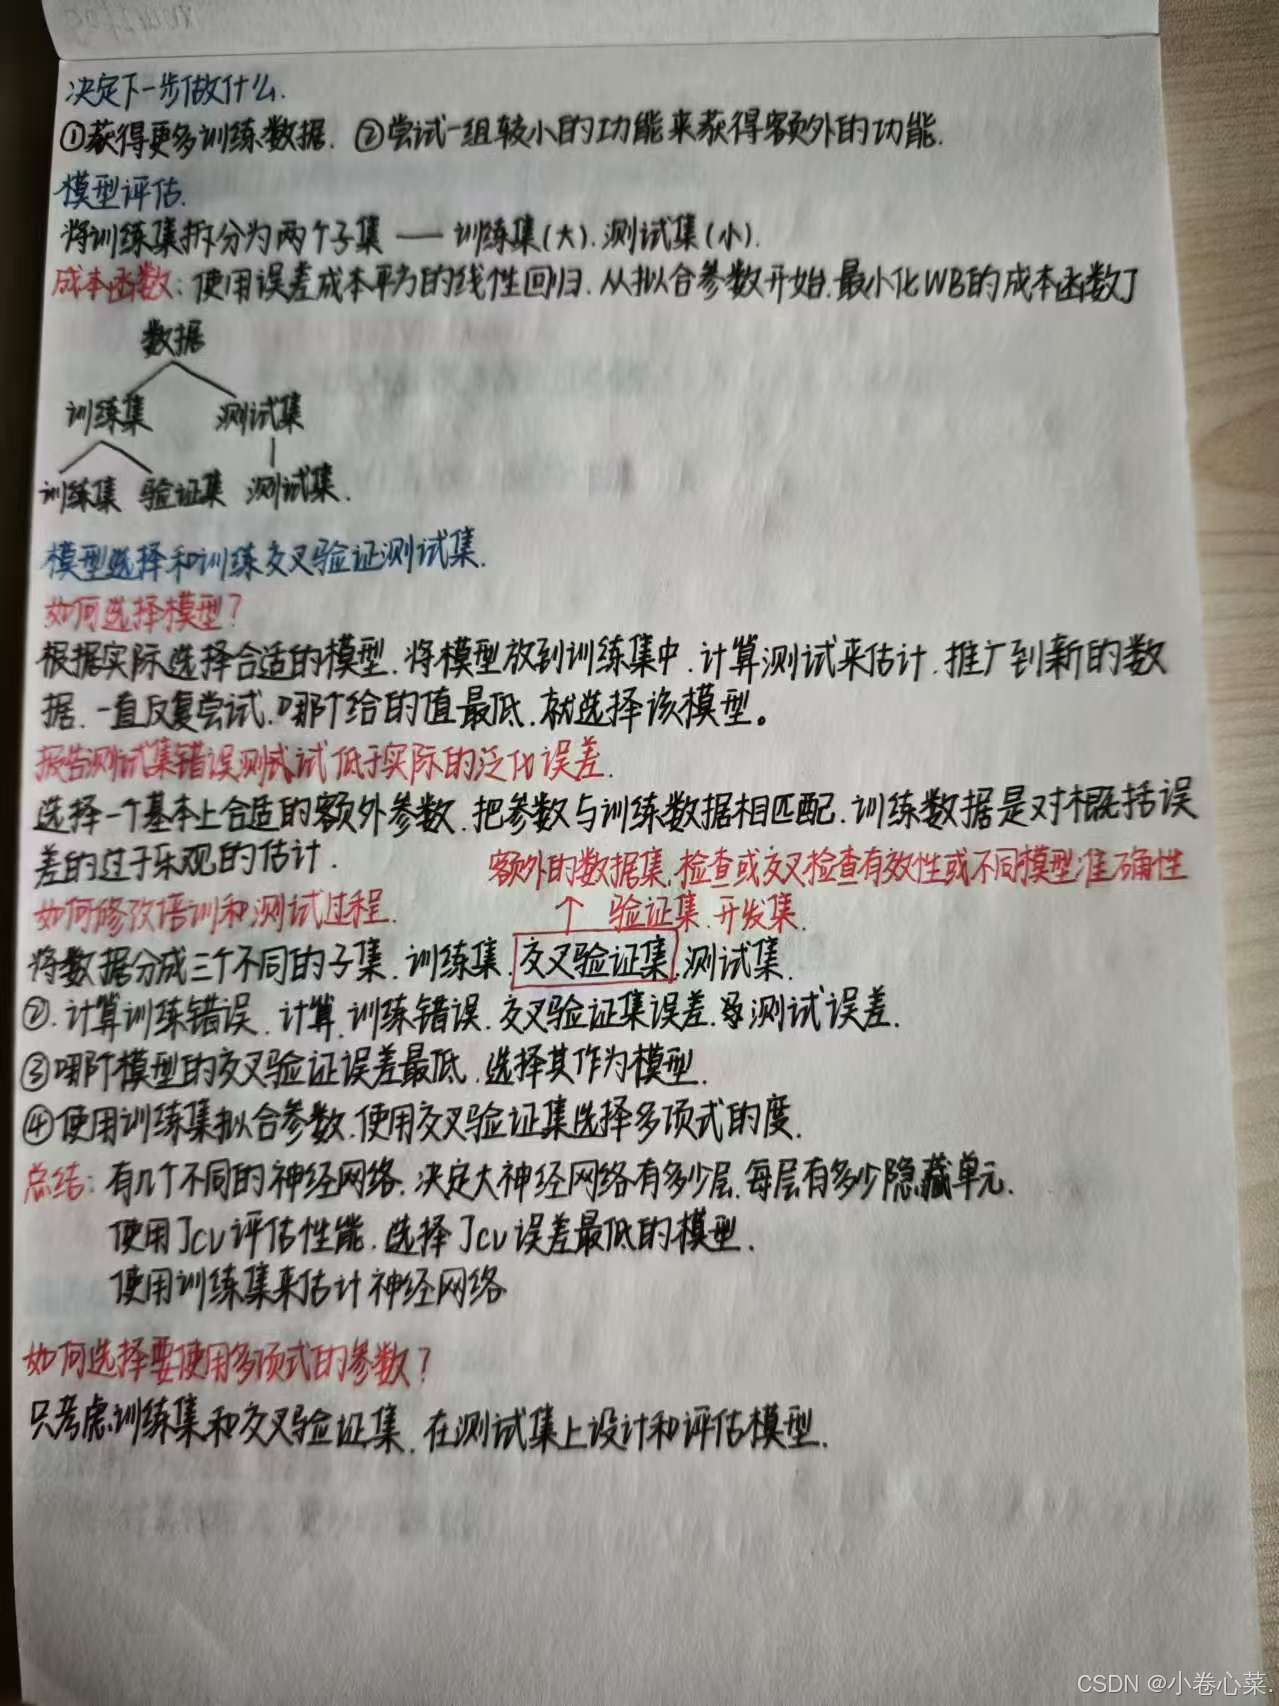 决定下一步做什么.
①获得更多训练数据. ②尝试一组较小的功能来获得额外的功能.
模型评估.
将训练集拆分为两个子集 —— 训练集(大). 测试集(小).
成本函数: 使用误差成本平方的线性回归. 从拟合参数开始. 最小化WB的成本函数J
数据
训练集 测试集
训练集 验证集 测试集.
模型选择和训练交叉验证测试集.
如何选择模型?
根据实际选择合适的模型. 将模型放到训练集中. 计算测试来估计. 推广到新的数
据. 一直反复尝试. 哪个给的值最低. 就选择该模型。
报告测试集错误测试试低于实际的泛化误差.
选择一个基本上合适的额外参数. 把参数与训练数据相匹配. 训练数据是对概括误
差的过于乐观的估计.
额外的数据集. 检查或交叉检查有效性或不同模型准确性
如何修改培训和测试过程. ↑ 验证集. 开发集.
将数据分成三个不同的子集. 训练集. 交叉验证集. 测试集.
②. 计算训练错误. 计算. 训练错误. 交叉验证集误差. 测试误差.
③哪个模型的交叉验证误差最低. 选择其作为模型.
④使用训练集拟合参数. 使用交叉验证集选择多项式的度.
总结: 有几个不同的神经网络. 决定大神经网络有多少层. 每层有多少隐藏单元.
使用Jcv评估性能. 选择Jcv误差最低的模型.
使用训练集来估计神经网络
如何选择要使用多项式的参数?
只考虑训练集和交叉验证集. 在测试集上设计和评估模型.
CSDN @小卷心菜.